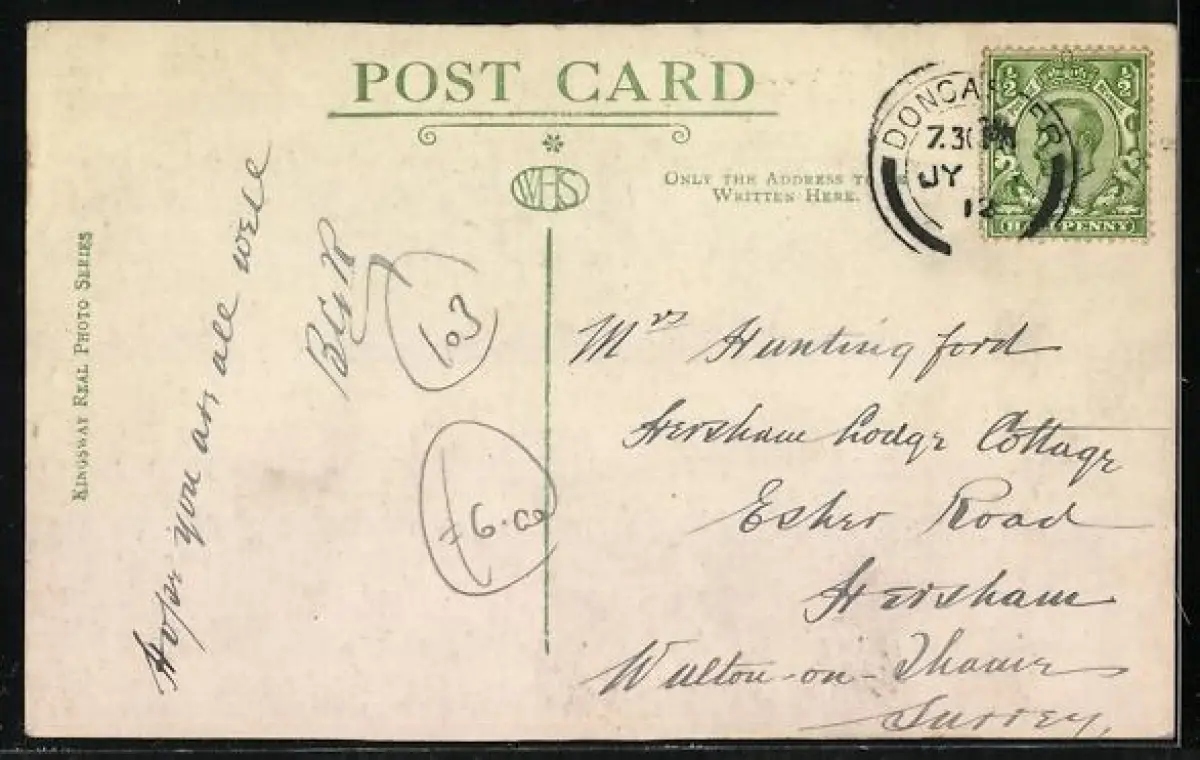 POST CARD
WHS
ONLY THE ADDRESS TO BE
WRITTEN HERE.
DONCASTER
7.30 PM
JY
12
½ ½
HALFPENNY
KINGSWAY REAL PHOTO SERIES
Hope you are all well
103
6.00
Mrs Huntingford
Hersham Lodge Cottage
Esher Road
Hersham
Walton-on-Thames
Surrey.